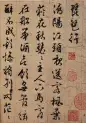 琵琶行
潯陽江頭夜送客楓葉
荻花秋瑟瑟主人下馬客
在船舉酒欲飲無管絃
醉不成歡慘將別別時